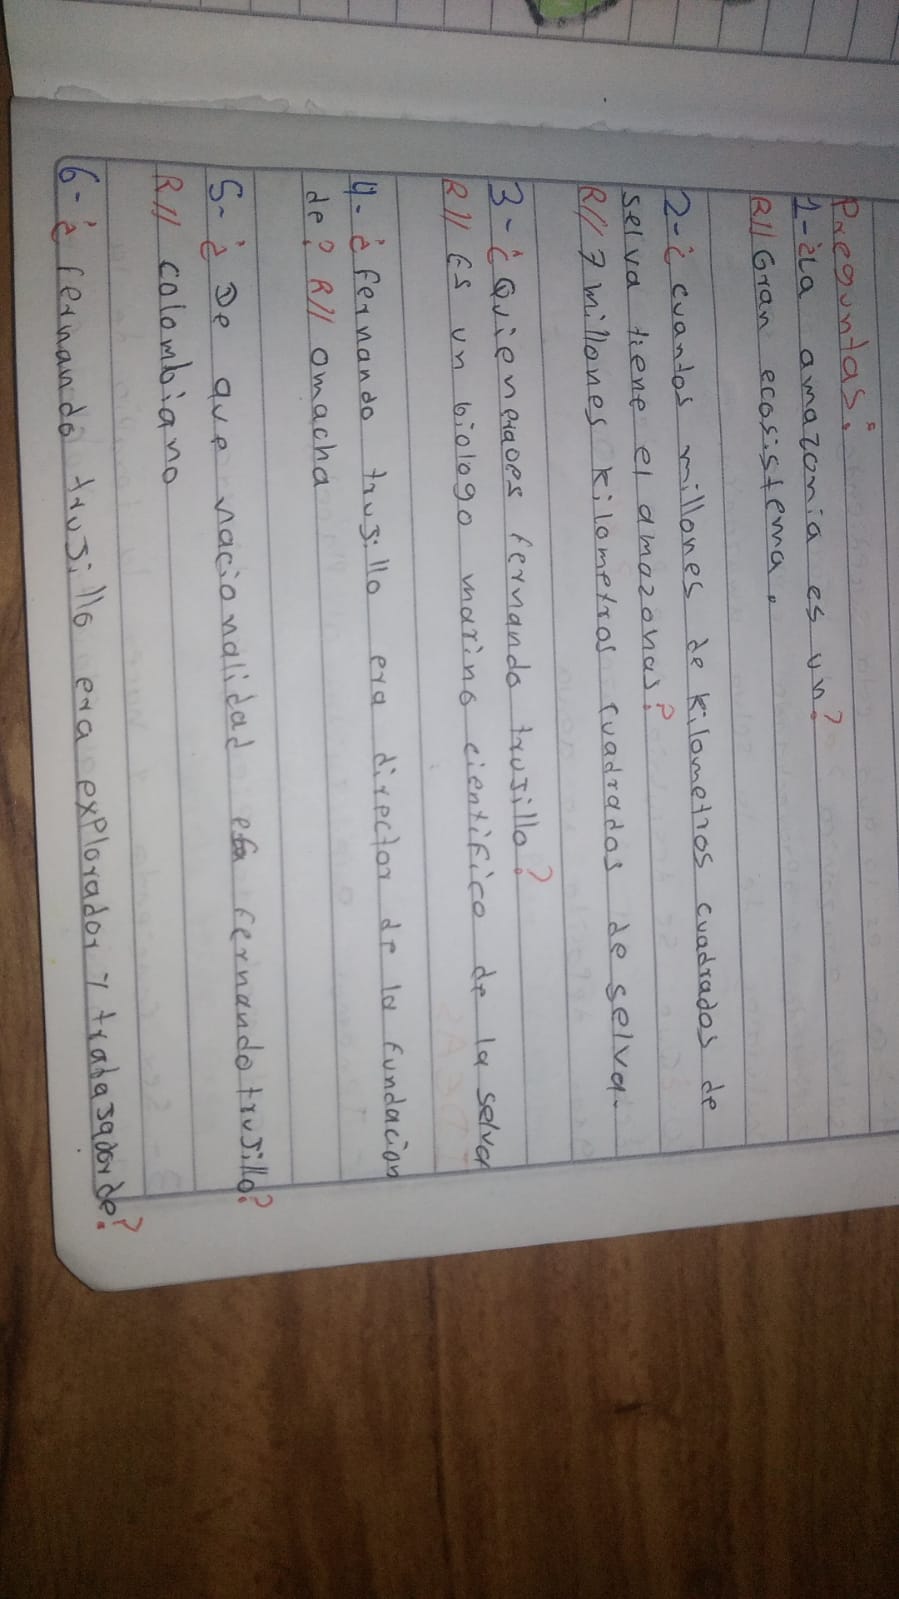 Preguntas:
1-¿La amazonia es un?
R// Gran ecosistema.
2-¿cuantos millones de kilometros cuadrados de
selva tiene el amazonas?
R// 7 millones kilometros cuadrados de selva.
3-¿Quien es fernando trusillo?
R// Es un biologo marino cientifico de la selva
4-¿fernando trusillo era director de la fundacion
de? R// omacha
5-¿De que nacionalidad era fernando trusillo?
R// colombiano
6-¿fernando trusillo era explorador y trabasador de?